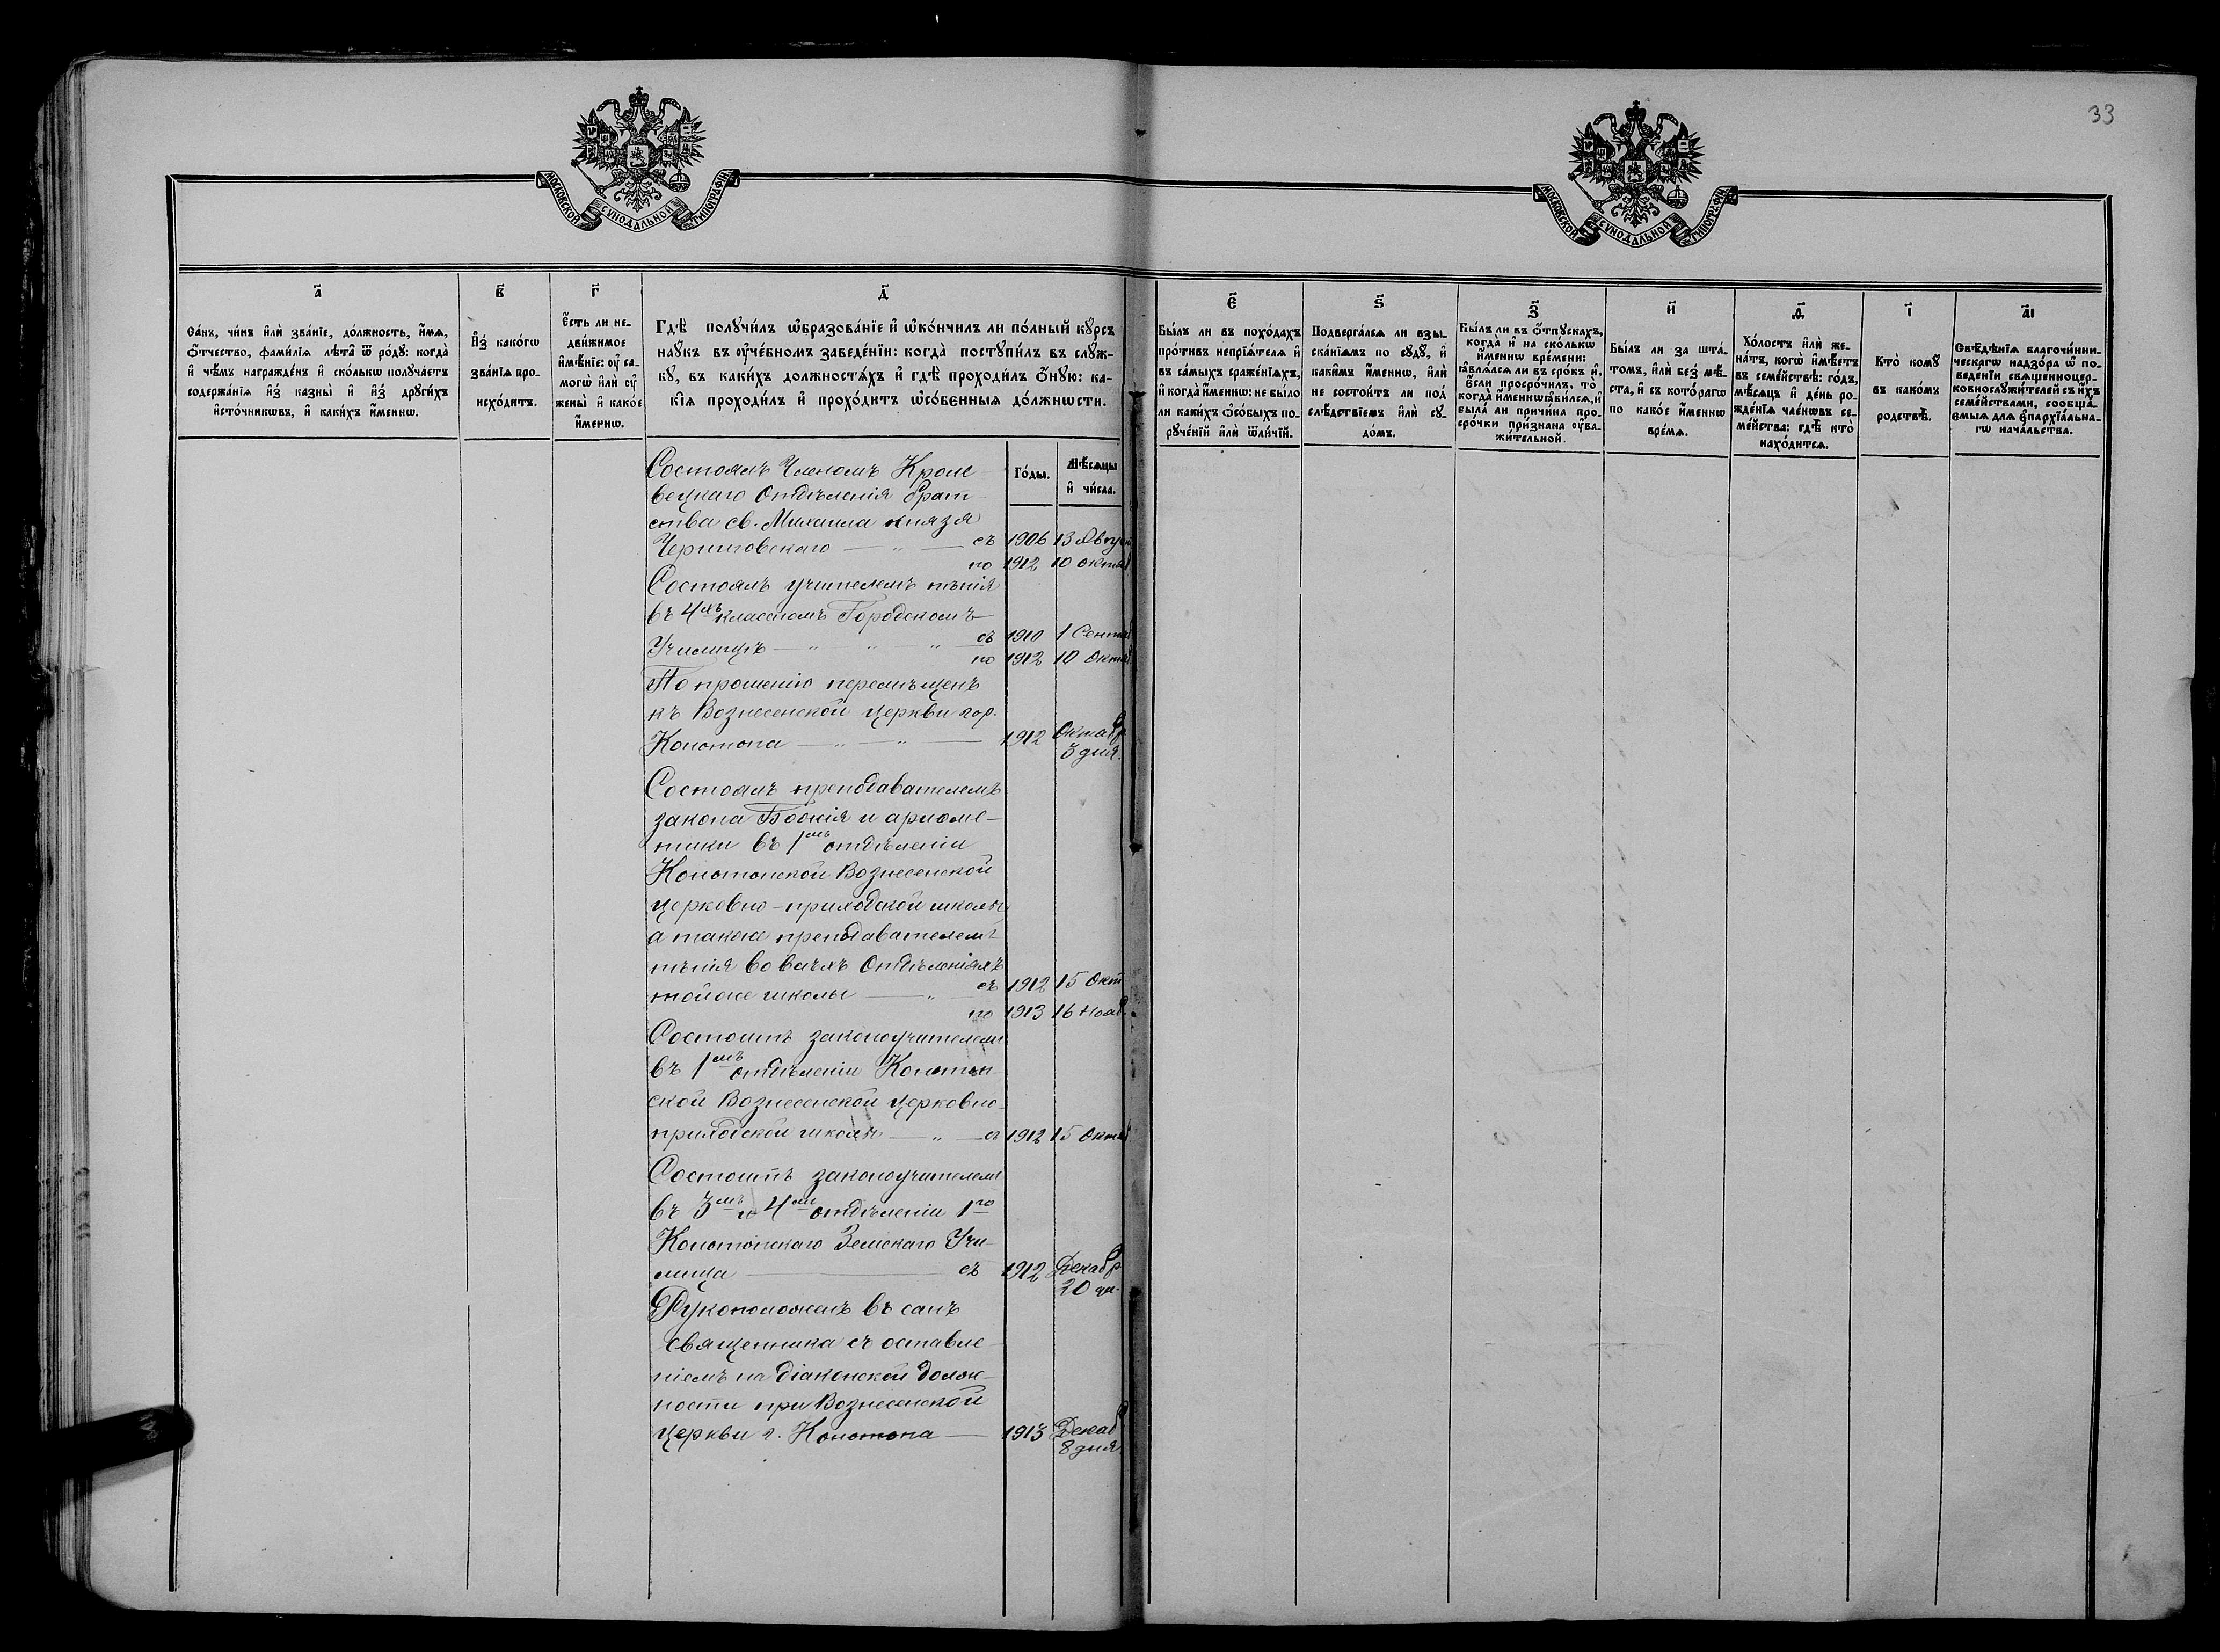 33
МОСКОВСКОЙ СѴНОДАЛЬНОЙ ТИПОГРАФІИ
МОСКОВСКОЙ СѴНОДАЛЬНОЙ ТИПОГРАФІИ
а҃
Са́нъ, чи́нъ и҆лѝ зва́нїе, до́лжность, и҆́мѧ,
ѻ҆́тчество, фами́лїѧ лѣта̀ ѿ ро́ду: когда̀
и҆ чѣ́мъ награжде́нъ и҆ ско́лькѡ получа́етъ
содержа́нїѧ и҆з̾ казны̀ и҆ и҆з̾ други́хъ
и҆сто́чникѡвъ, и҆ каки́хъ и҆́меннѡ.
в҃
И҆з̾ како́гѡ
зва́нїѧ про-
исхо́дитъ.
г҃
Є҆́сть ли не-
дви́жимое
и҆мѣ́нїе: оу҆ са-
могѡ̀ и҆лѝ оу҆
жены̀ и҆ како́е
и҆́меннѡ.
д҃
Гдѣ̀ получи́лъ ѡ҆бразова́нїе и҆ ѡ҆ко́нчилъ ли по́лный ку́рсъ
нау́къ въ оу҆че́бномъ заведе́нїи: когда̀ поступи́лъ въ слу́ж-
бу, въ каки́хъ должностѧ́хъ и҆ гдѣ̀ проходи́лъ ѻ҆́ную: ка-
кі́ѧ проходи́лъ и҆ прохо́дитъ ѡ҆со́бенныѧ до́лжнѡсти.
Го́ды.
Мѣ́сѧцы
и҆ чи́сла.
Состоялъ Членомъ Кроле-
вецкаго Отдѣленія Брат-
ства св. Михаила князя
Черниговскаго — „ — съ 1906 13 Август
по 1912 10 октяб
Состоялъ учителемъ пѣнія
въ 4хъ классномъ Городскомъ
Училищѣ — „ „ „ съ 1910 1 Сентяб
по 1912 10 Октяб
По прошенію перемѣщенъ
къ Вознесенской церкви гор.
Конотопа — „ — „ — 1912 Октябр
3 дня.
Состоялъ преподавателемъ
закона Божія и ариѳме-
тики въ 1мъ отдѣленіи
Конотопской Вознесенской
церковно-приходской школы,
а также преподавателемъ
пѣнія во всѣхъ Отдѣленіяхъ
тойже школы — „ съ 1912 15 Окт
по 1913 16 Нояб.
Состоитъ законоучителемъ
въ 1мъ отдѣленіи Конотоп-
ской Вознесенской церковно-
приходской школы — „ — съ 1912 15 Октяб
Состоитъ законоучителемъ
въ 3мъ и 4мъ отдѣленіи 1го
Конотопскаго Земскаго Учи-
лища — съ 1912 Декабр
20 дн.
Рукоположенъ въ санъ
священника съ оставле-
ніемъ на діаконской долж-
ности при Вознесенской
церкви г. Конотопа — 1913 Декаб
8 дня.
є҃
Бы́лъ ли въ похо́дахъ
про́тивъ непрїѧ́телѧ и҆
въ са́мыхъ сраже́нїѧхъ,
и҆ когда̀ и҆́меннѡ: не бы́ло
ли каки́хъ ѻ҆со́быхъ по-
руче́нїй и҆лѝ ѿли́чїй.
ѕ҃
Подверга́лсѧ ли взы-
ска́нїѧмъ по суду̀, и҆
каки̑мъ и҆́меннѡ, и҆лѝ
не состои́тъ ли под̾
слѣ́дствїемъ и҆лѝ су-
до́мъ.
з҃
Бы́лъ ли въ ѻ҆́тпускахъ,
когда̀ и҆ на ско́лькѡ
и҆́меннѡ вре́мени:
ꙗ҆влѧ́лсѧ ли въ сро́къ и҆,
є҆́сли просро́чилъ, то̀
когда̀ и҆́меннѡ ꙗ҆ви́лсѧ, и҆
была̀ ли причи́на про-
сро́чки при́знана оу҆ва-
жи́тельной.
и҃
Бы́лъ ли за шта́-
томъ, и҆лѝ без̾ мѣ́-
ста, и҆ съ кото́рагѡ
по како́е и҆́меннѡ
вре́мѧ.
ѳ҃
Хо́лостъ и҆лѝ же-
на́тъ, когѡ̀ и҆мѣ́етъ
въ семе́йствѣ: го́дъ,
мѣ́сѧцъ и҆ де́нь ро-
жде́нїѧ чле́нѡвъ се-
ме́йства: гдѣ̀ кто̀
нахо́дитсѧ.
і҃
Кто̀ кому̀
въ како́мъ
родствѣ̀.
а҃і
Свѣ́дѣнїѧ благочи́нни-
ческагѡ надзо́ра ѡ҆ по-
веде́нїи свѧщенноцер-
ковнослужи́телей съ и҆́хъ
семе́йствами, сообща́-
емыѧ для є҆парxїа́льна-
гѡ нача́льства.